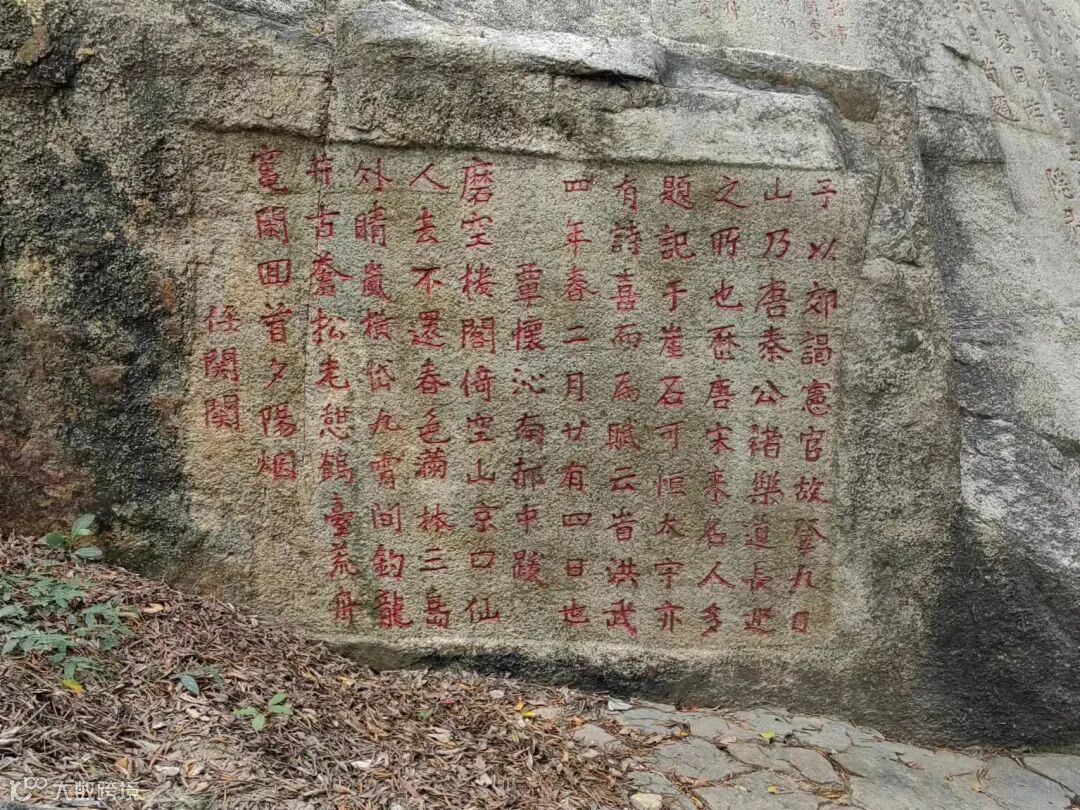 予以郊謁憲官故登九日
山乃唐秦公緒樂道長逝
之所也歷唐宋來名人多
題記于崖石可恒太宇亦
有詩喜而為賦云旹洪武
四年春二月廿有四日也
覃懷沁南郝中
磨空楼閣倚空山京口仙
人去不還春色滿林三島
外晴嵐橫岱九霄間釣龍
井古蒼松老憩鶴臺荒丹
竈閑回首夕陽烟
任關關
大数跨境